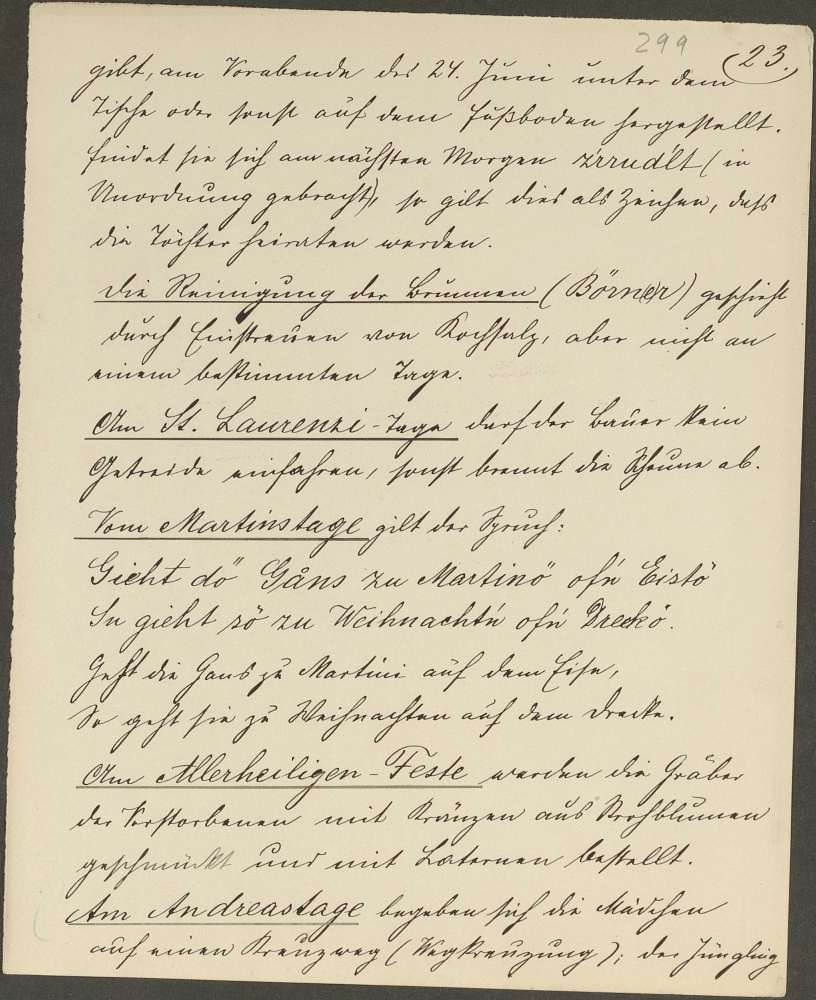 299
23.
gibt, am Vorabende des 24. Juni unter dem
Tische oder sonst auf dem Fußboden hergestellt.
Findet sie sich am nächsten Morgen (in
Unordnung gebracht), so gilt dies als Zeichen, daß
die Töchter heiraten werden.
Die Reinigung der Brunnen (Börner) geschieht
durch Einstreuen von Kochsalz, aber nicht an
einem bestimmten Tage.
Am St. Laurenzi-Tage darf der Bauer kein
Getreide einfahren, sonst brennt die Scheune ab.
Vom Martinstage gilt der Spruch:
Gieht dö Gåns zu Martinö ofn Eistö
Su gieht sö zu Weihnachtń ofń Dreckö.
Geht die Gans zu Martini auf dem Eise,
So geht sie zu Weihnachten auf dem Drecke.
Am Allerheiligen-Feste werden die Gräber
der Verstorbenen mit Kränzen aus Strohblumen
geschmückt und mit Laternen bestellt.
Am Andreastage begeben sich die Mädchen
auf einen Kreuzweg (Wegkreuzung); der Jüngling